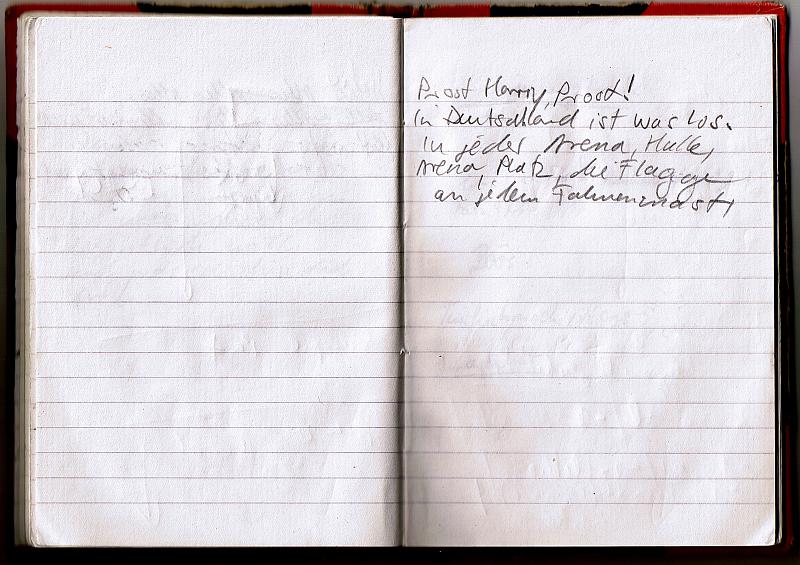 Prost Harry, Prost!
In Deutschland ist was los.
In jeder Arena, Halle,
Arena, Platz, die Flagge
an jedem Fahnenmast,